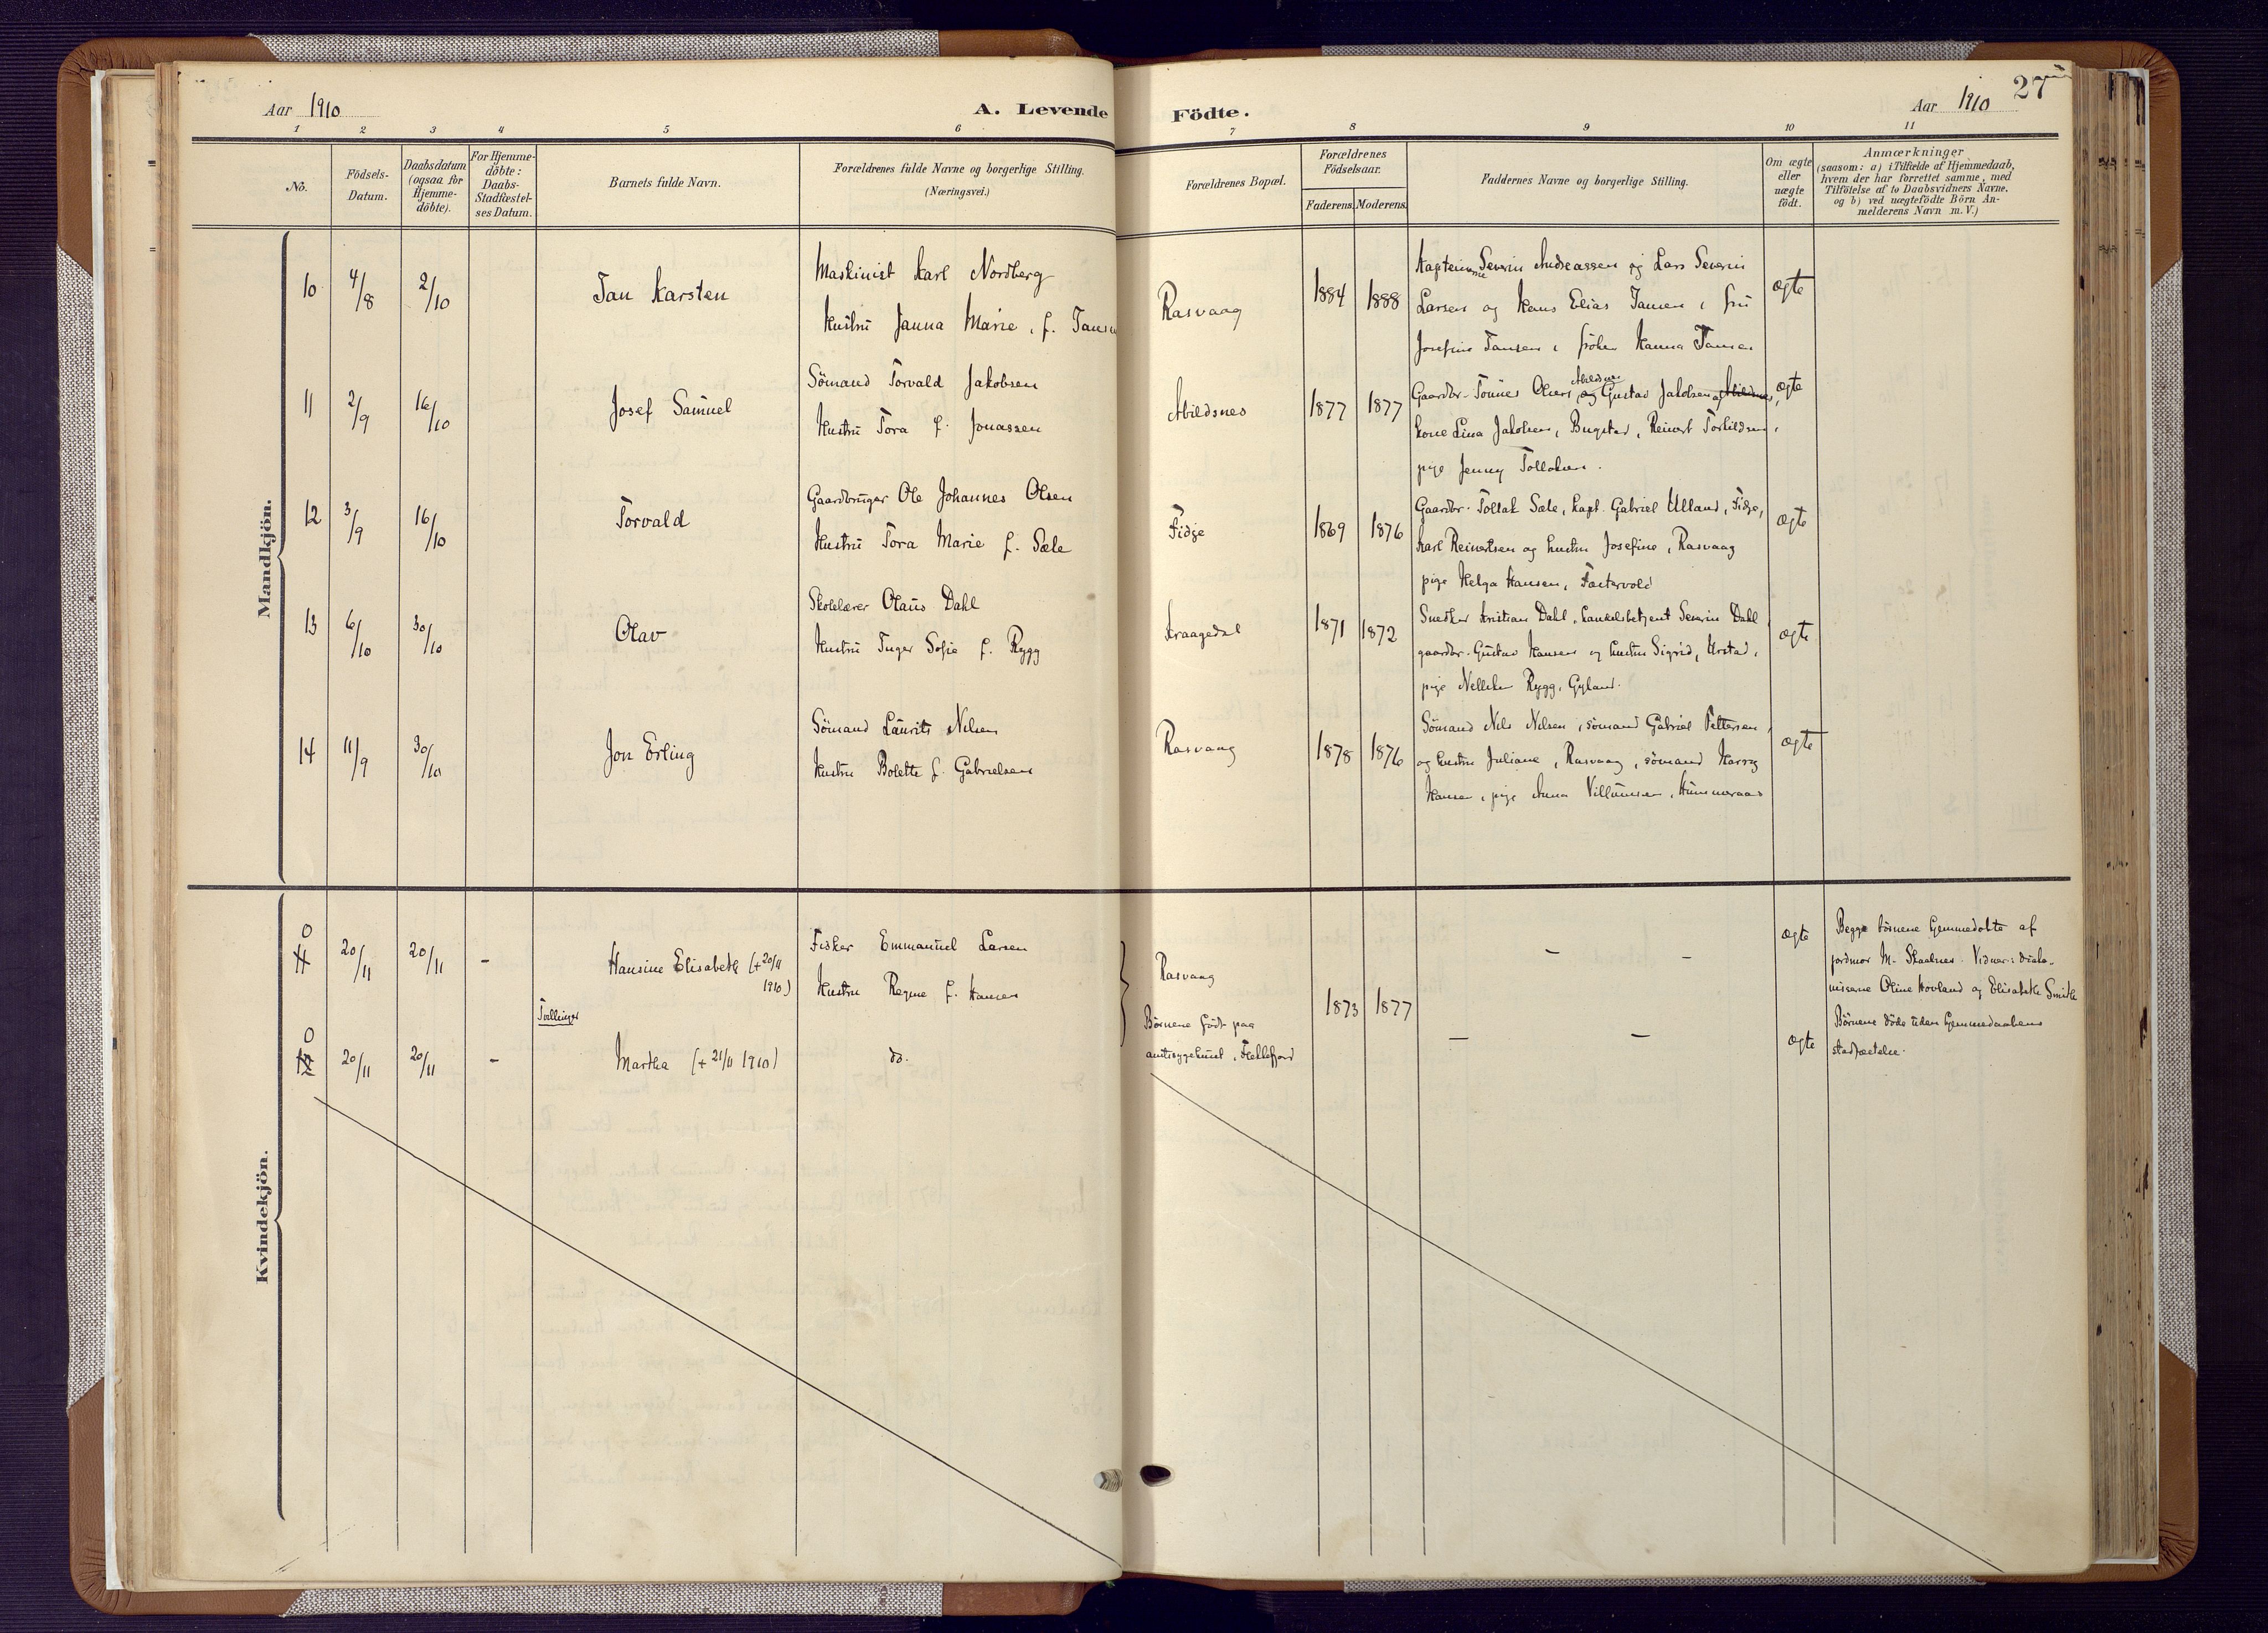 Aar 1910
A. Levende
Födte.
Aar 1910
27
1 2 3 4 5 6 7 8 9 10 11
No.
Födsels-
Datum.
Daabsdatum
(ogsaa for
Hjemme-
döbte).
For Hjemme-
döbte:
Daabs-
Stadfæstel-
ses Datum.
Barnets fulde Navn.
Forældrenes fulde Navne og borgerlige Stilling.
(Næringsvei.)
Forældrenes Bopæl.
Forældrenes
Födselsaar.
Faderens. Moderens.
Faddernes Navne og borgerlige Stilling.
Om ægte
eller
uægte
födt.
Anmærkninger
(saasom: a) i Tilfælde af Hjemmedaab,
hvem der har forrettet samme, med
Tilföielse af to Daabsvidners Navne,
og b) ved uægtefödte Börn An-
melderens Navn m. V.)
Mandkjön.
10 4/8 2/10 Jan Karsten
Maskinist Karl Nordberg
Hustru Janna Marie, f. Jansen
Rasvaag 1884 1888
Kapteinerne Severin Andreassen og Lars Severin
Larsen og Hans Elias Jansen, fru
Josefine Jansen, fröken Hanna Jansen
ægte
11 2/9 16/10 Josef Samuel
Sömand Torvald Jakobsen
Hustru Tora f. Jonassen
Abildsnes 1877 1877
Abildsnes
Gaardbr. Tönnes Olsen, og Gustav Jakobsen, Abildsnes,
kone Lina Jakobsen, Bugstad, Reinert Torkildsen,
pige Jenny Tollaksen.
ægte
12 3/9 16/10 Torvald
Gaardbruger Ole Johannes Olsen
Hustru Tora Marie f. Sæle
Fidje 1869 1876
Gaardbr. Tollak Sæle, kapt. Gabriel Ulland, Fidje,
Karl Reinertsen og hustru Josefine, Rasvaag
pige Helga Hansen, Fastervold
ægte
13 6/10 30/10 Olav
Skolelærer Olaus Dahl
Hustru Inger Sofie f. Rygg
Kraagedal 1871 1872
Snedker Kristian Dahl, handelsbetjent Severin Dahl
gaardbr. Gustav Hansen og hustru Sigrid, Urstad,
pige Nelleken Rygg, Gyland.
ægte
14 11/9 30/10 Jon Erling
Sömand Laurits Nilsen
Hustru Bolette f. Gabrielsen
Rasvaag 1878 1876
Sömand Nils Nilsen, sömand Gabriel Pettersen,
og hustru Juliane, Rasvaag, sömand Harry
Hansen, pige Anna Villumsen, Hummeraas
ægte
Kvindekjön.
0
11 20/11 20/11 - Hansine Elisabeth (+ 20/11
1910)
Fisker Emmanuel Larsen
Hustru Regine f. Hansen
Rasvaag
Börnene födt paa
amtsygehuset, Flekkefjord
1873 1877
- -
ægte
Begge börnene hjemmedöbte af
jordmor M. Skaalnes. Vidner: diako-
nisserne Oline Hovland og Elisabeth Smith
Börnene döde uden hjemmedaabens
stadfæstelse.
Tvillinger
0
12 20/11 20/11 - Martha (+ 21/11 1910)
do.
- -
ægte